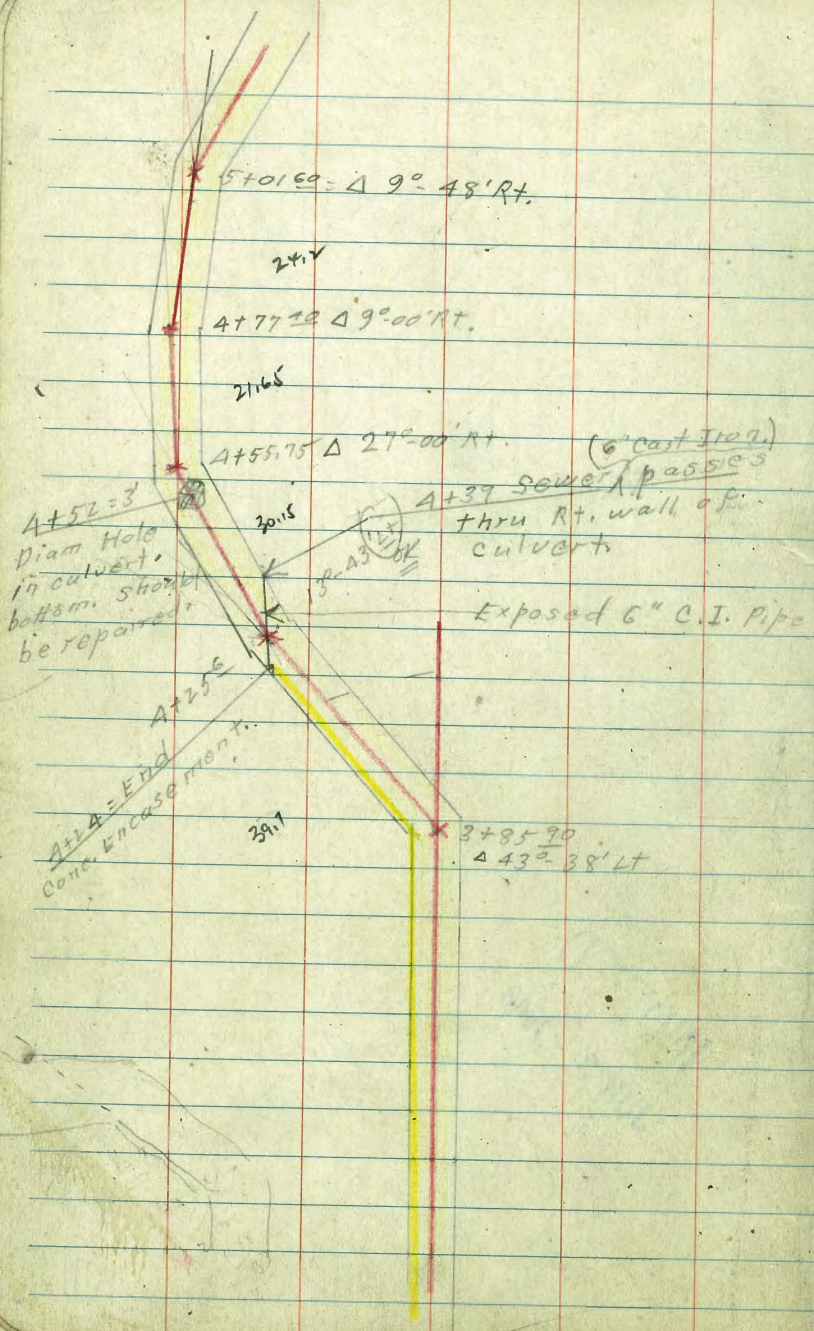 5+01 60 = Δ 9°-48' Rt.
24.2
4+77 40 Δ 9°-00' Rt.
21.65
4+55.75 Δ 27°-00' Rt.
(6" Cast Iron.)
4+39 Sewer ∧ passes
thru Rt. wall of
culvert.
4+52 = 3'
Diam Hole
in culvert.
bottom. should
be repaired.
30.15
13°-43' Lt
OK
Exposed 6" C.I. Pipe
4+25 6
4+24 = End
Conc. Encasement.
39.7
3+85 90
Δ 43°-38' Lt